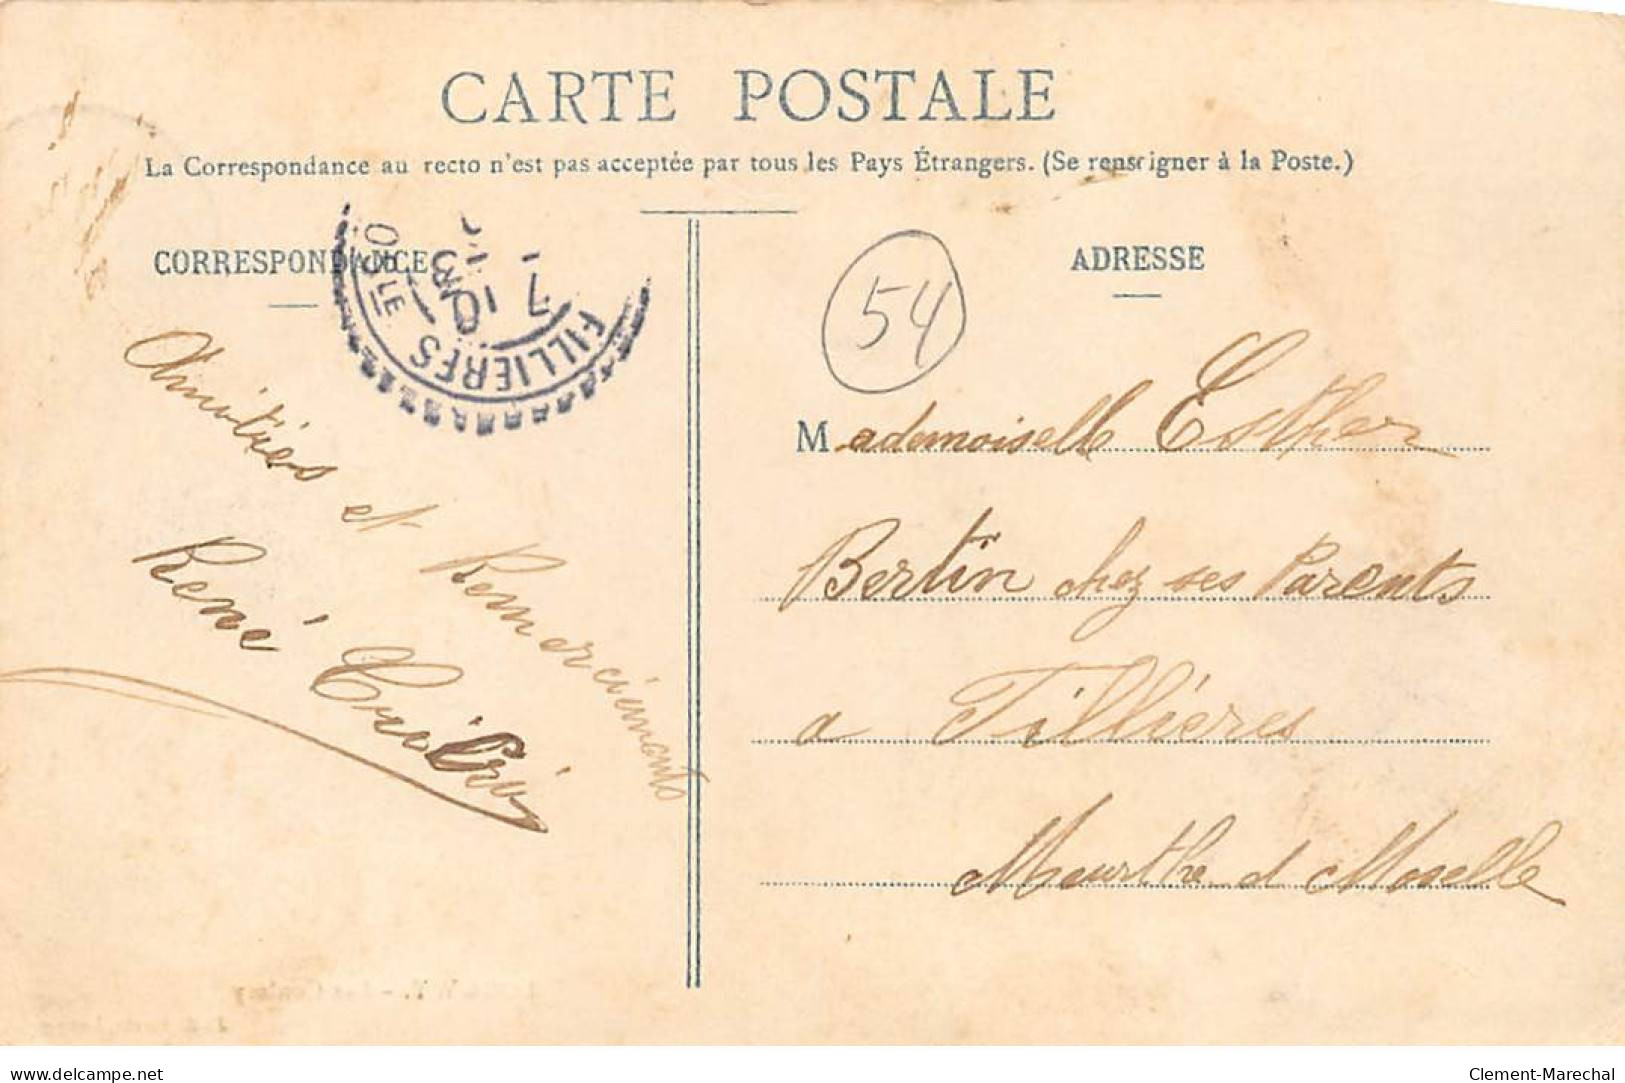 CARTE POSTALE
La Correspondance au recto n'est pas acceptée par tous les Pays Étrangers. (Se renseigner à la Poste.)
CORRESPONDANCE
ADRESSE
FILLIERES
54
Amitiés et Remerciements
René
Mademoiselle Esther
Bertin chez ses Parents
a Fillières
Meurthe et Moselle
www.delcampe.net
Clement-Marechal